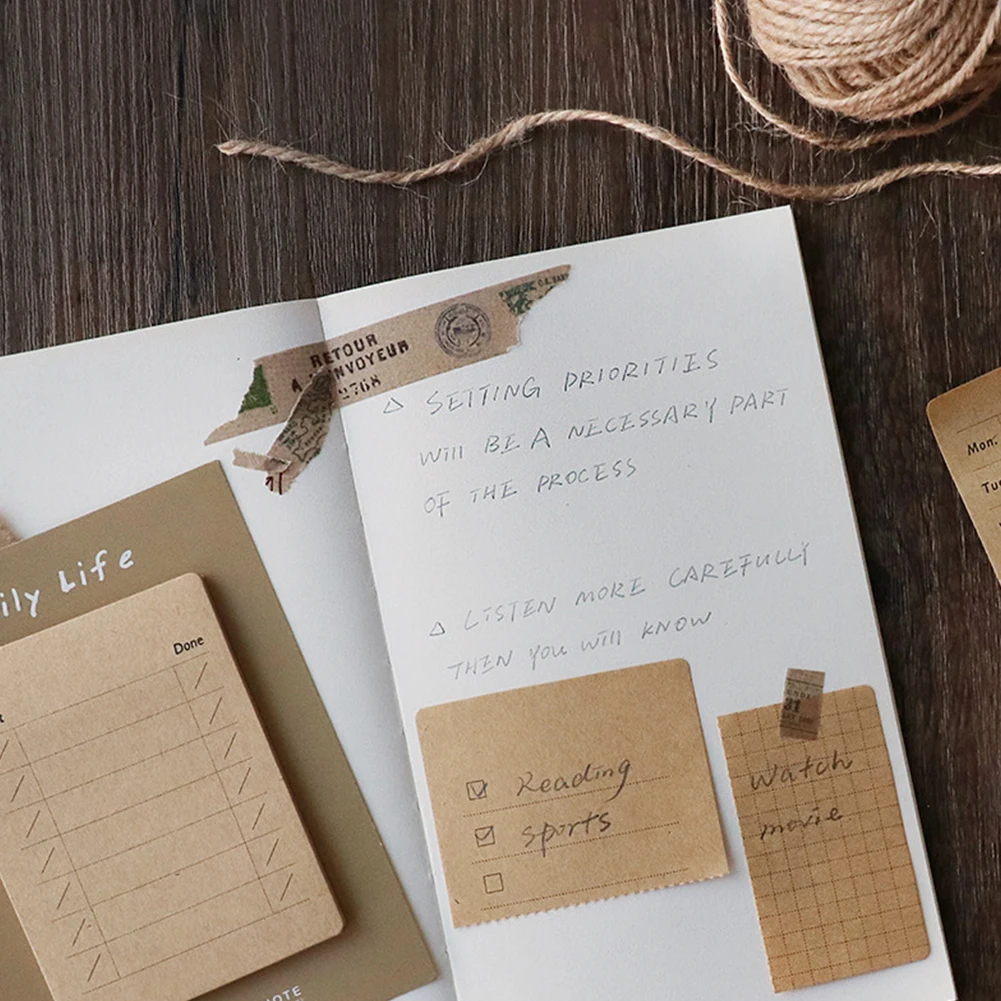 RETOUR
A L'ENVOYEUR
2768
△ SETTING PRIORITIES
Will BE A NECESSARY PART
OF THE PROCESS
△ LISTEN MORE CAREFULLY
THEN YOU Will KNOW
☑ Reading
☑ sports
☐
31
Watch
movie
ily Life
Done
OTE
Mon.
Tu